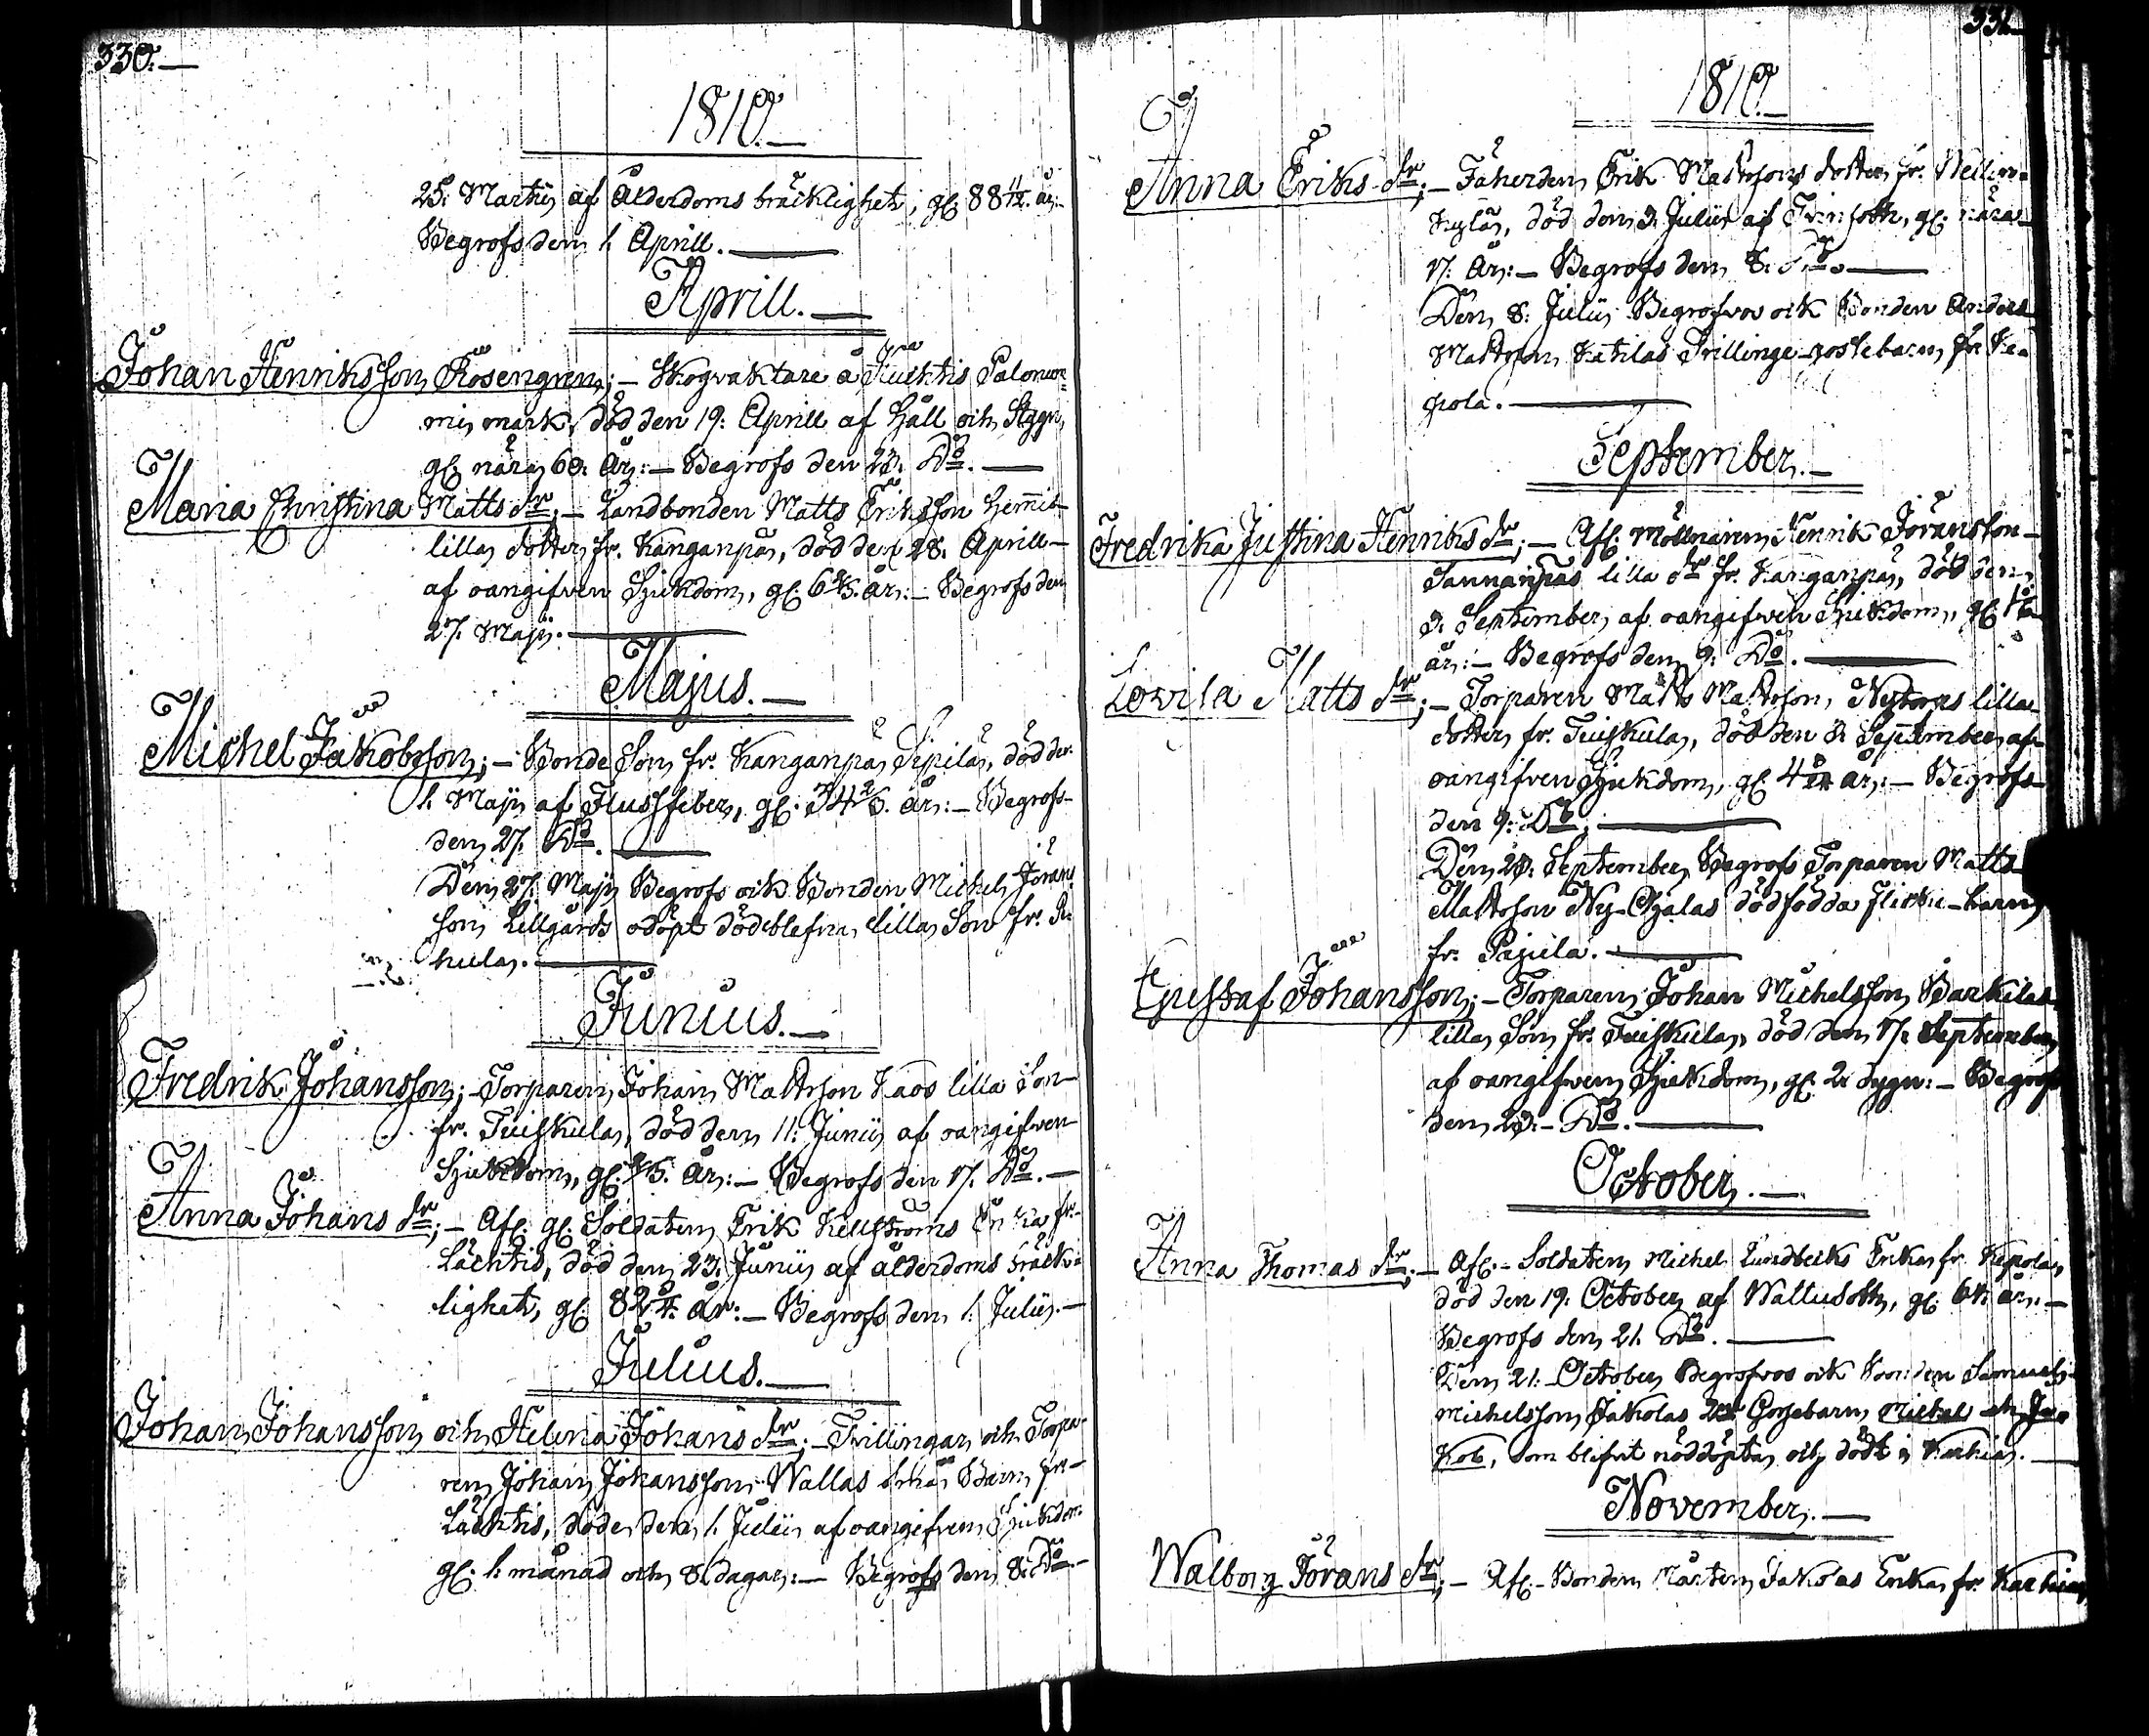 330.
1810.
25. Martii af Ålderdoms bräcklighet, gl: 88 1/2. år:
Begrofs den 1. Aprill.
Aprill.
Johan Henriksson Rosengren; – Skogvaktare å
mis mark, död den 19. Aprill af Håll och Stygn,
gl: nära 60. År: – Begrofs den 23. Do.
Maria Christina Matts dr; – Landbonden Matts Eriksson
lilla dotter fr. Kanganpää, död den 28. Aprill
af oangifven Sjukdom, gl: år: – Begrofs den
27. Maji.
Majus.
Michel Jakobsson; – Bonde Son fr. Kanganpää Sipilä, död den
1. Maji af Flussfeber, gl: 34 år: – Begrofs
den 27. Do.
Den 27. Maji Begrofs ock Bonden Michel Jöran
sons Lillgårds odöpt dödeblefna lilla Son fr.
kula.
Junius.
Fredrik Johansson; – Torparen Johan Mattsson Kaos lilla Son
fr. Tuiskula, död den 11. Junii af oangifven
Sjukdom, gl: År: – Begrofs den 17. Do.
Anna Johans dr; – Afl: gl: Soldaten Erik Enka fr.
Lächtis, död den 23. Junii af ålderdoms bräck-
lighet, gl: 82 år: – Begrofs den 1. Julii.
Julius.
Johan Johansson och Helena Johans dr; – Tvillingar och Torpa-
ren Johan Johansson Wallas Barn fr.
Lächtis, döde den 1. Julii af oangifven Sjukdom
gl: 1. månad och 8. dagar: – Begrofs den 8. Do.
331.
1810.
Anna Eriks dr; – Fäherden Erik Mattsons dotter fr.
kylä, död den 3. Julii af gl: nära
17. År: – Begrofs den 8. Do.
Den 8. Julii Begrofvos ock Bonden Anders
Mattson Katilas Trillinge gossebarn fr. Ke-
pola.
September.
Fredrika Justina Henriks dr; – Afl: Möllnären Henrik Jöransson
lilla dr fr. Kanganpää, död den
3. September af oangifven Sjukdom, gl:
år: – Begrofs den 9. Do.
Lovisa Matts dr; – Torparen Matts Mattson, lilla
dotter fr. Tuiskula, död den 3. September af
oangifven Sjukdom, gl: 4 år: – Begrofs
den 9. Do.
Den 23. September Begrofs Torparen Matts
Mattson Ny-Ojalas dödfödda flicke-barn
fr. Pajula.
Gustaf Johansson; – Torparen Johan Michelsson Barkilas
lilla Son fr. Tuiskula, död den 17. September
af oangifven Sjukdom, gl: 2. dygn: – Begrofs
den 23. Do.
October.
Anna Thomas dr; – Afl: Soldaten Michel Lundbecks Enka fr. Kepola,
död den 19. October af Wattusoth, gl: 64. år: –
Begrofs den 21. Do.
Den 21. October Begrofvos ock Bonden Samuel
Michelsson Jakolas 2ne Gossebarn Michel och Ja-
kob, som blifvit nöddöpta och dödt i Karhia.
November.
Walborg Jörans dr; – Afl: Bonden Mårten Jakolas Enka fr. Karhia,